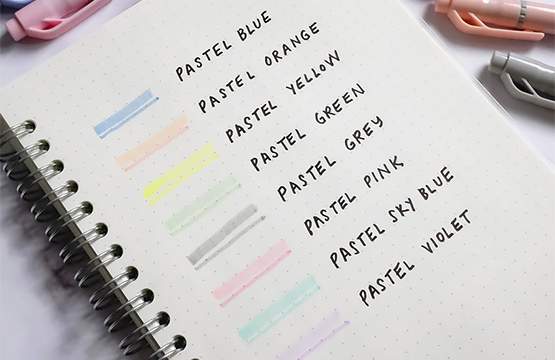 PASTEL BLUE
PASTEL ORANGE
PASTEL YELLOW
PASTEL GREEN
PASTEL GREY
PASTEL PINK
PASTEL SKY BLUE
PASTEL VIOLET